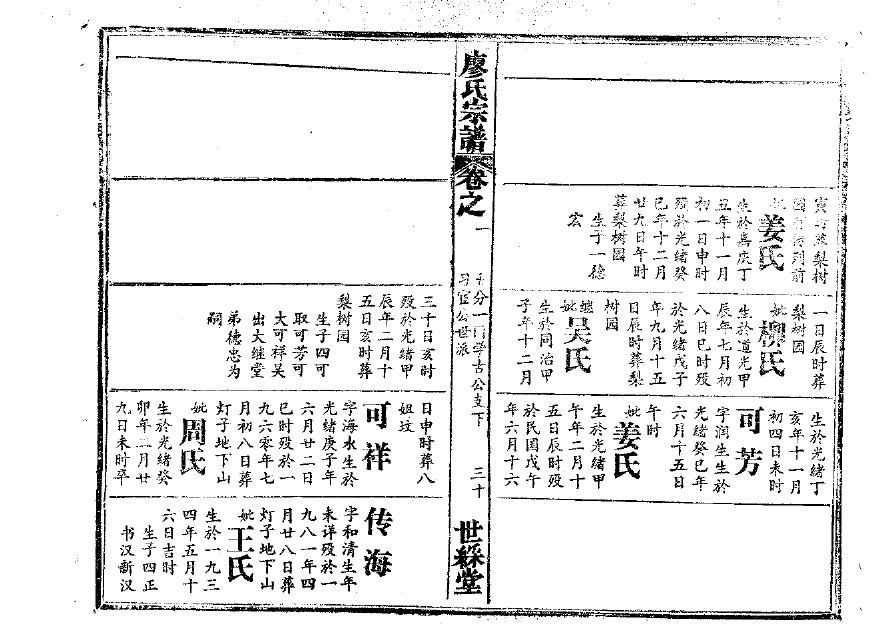 寅
梨树
姜氏
生於嘉庆丁
丑年十一月
初一日申时
殁於光绪癸
巳年十二月
廿九日午时
葬梨树园
生子一德
宏
一日辰时葬
梨树园
妣柳氏
生於道光甲
辰年七月初
八日巳时殁
於光绪戊子
年九月十五
日辰时葬梨
树园
继妣吴氏
生於同治甲
子年十二月
生於光绪丁
亥年十一月
初四日未时
可芳
字润生生於
光绪癸巳年
六月十五日
午时
妣姜氏
生於光绪甲
午年二月十
五日辰时殁
於民国戊午
年六月十六
廖氏宗谱
卷之一
分一门学古公支下
习宦公世派
三十
世綵堂
三十日亥时
殁於光绪甲
辰年二月十
五日亥时葬
梨树园
生子四可
取可芳可
大可祥吴
出大继堂
弟德忠为
嗣
日申时葬八
姐坟
可祥
字海水生於
光绪庚子年
六月廿二日
巳时殁於一
九六零年七
月初八日葬
灯子地下山
妣周氏
生於光绪癸
卯年二月廿
九日未时卒
传海
字和清生年
未详殁於一
九八一年四
月廿八日葬
灯子地下山
妣王氏
生於一九三
四年五月十
六日吉时
生子四正
书汉新汉